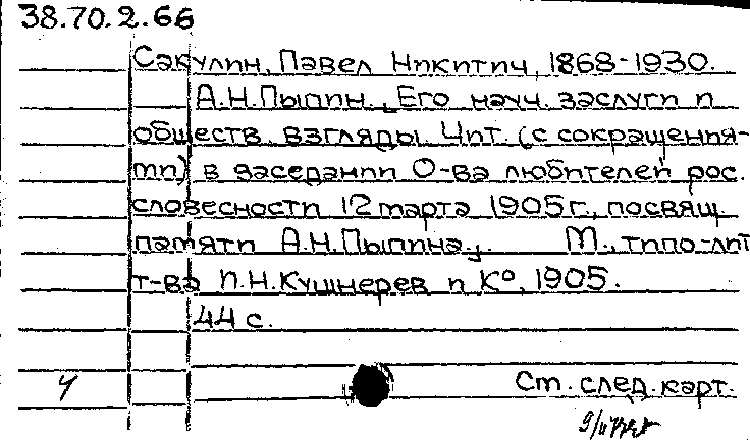 38.70.2.66
Сакулин, Павел Никитич, 1868-1930.
А.Н.Пыпин. Его науч. заслуги и
обществ. взгляды. Чит. (с сокращения-
ми) в заседании О-ва любителей рос.
словесности 12 марта 1905 г., посвящ.
памяти А.Н.Пыпина. М., типо-лит
т-ва И.Н.Кушнерев и К°, 1905.
44 с.
Ст. след. карт.